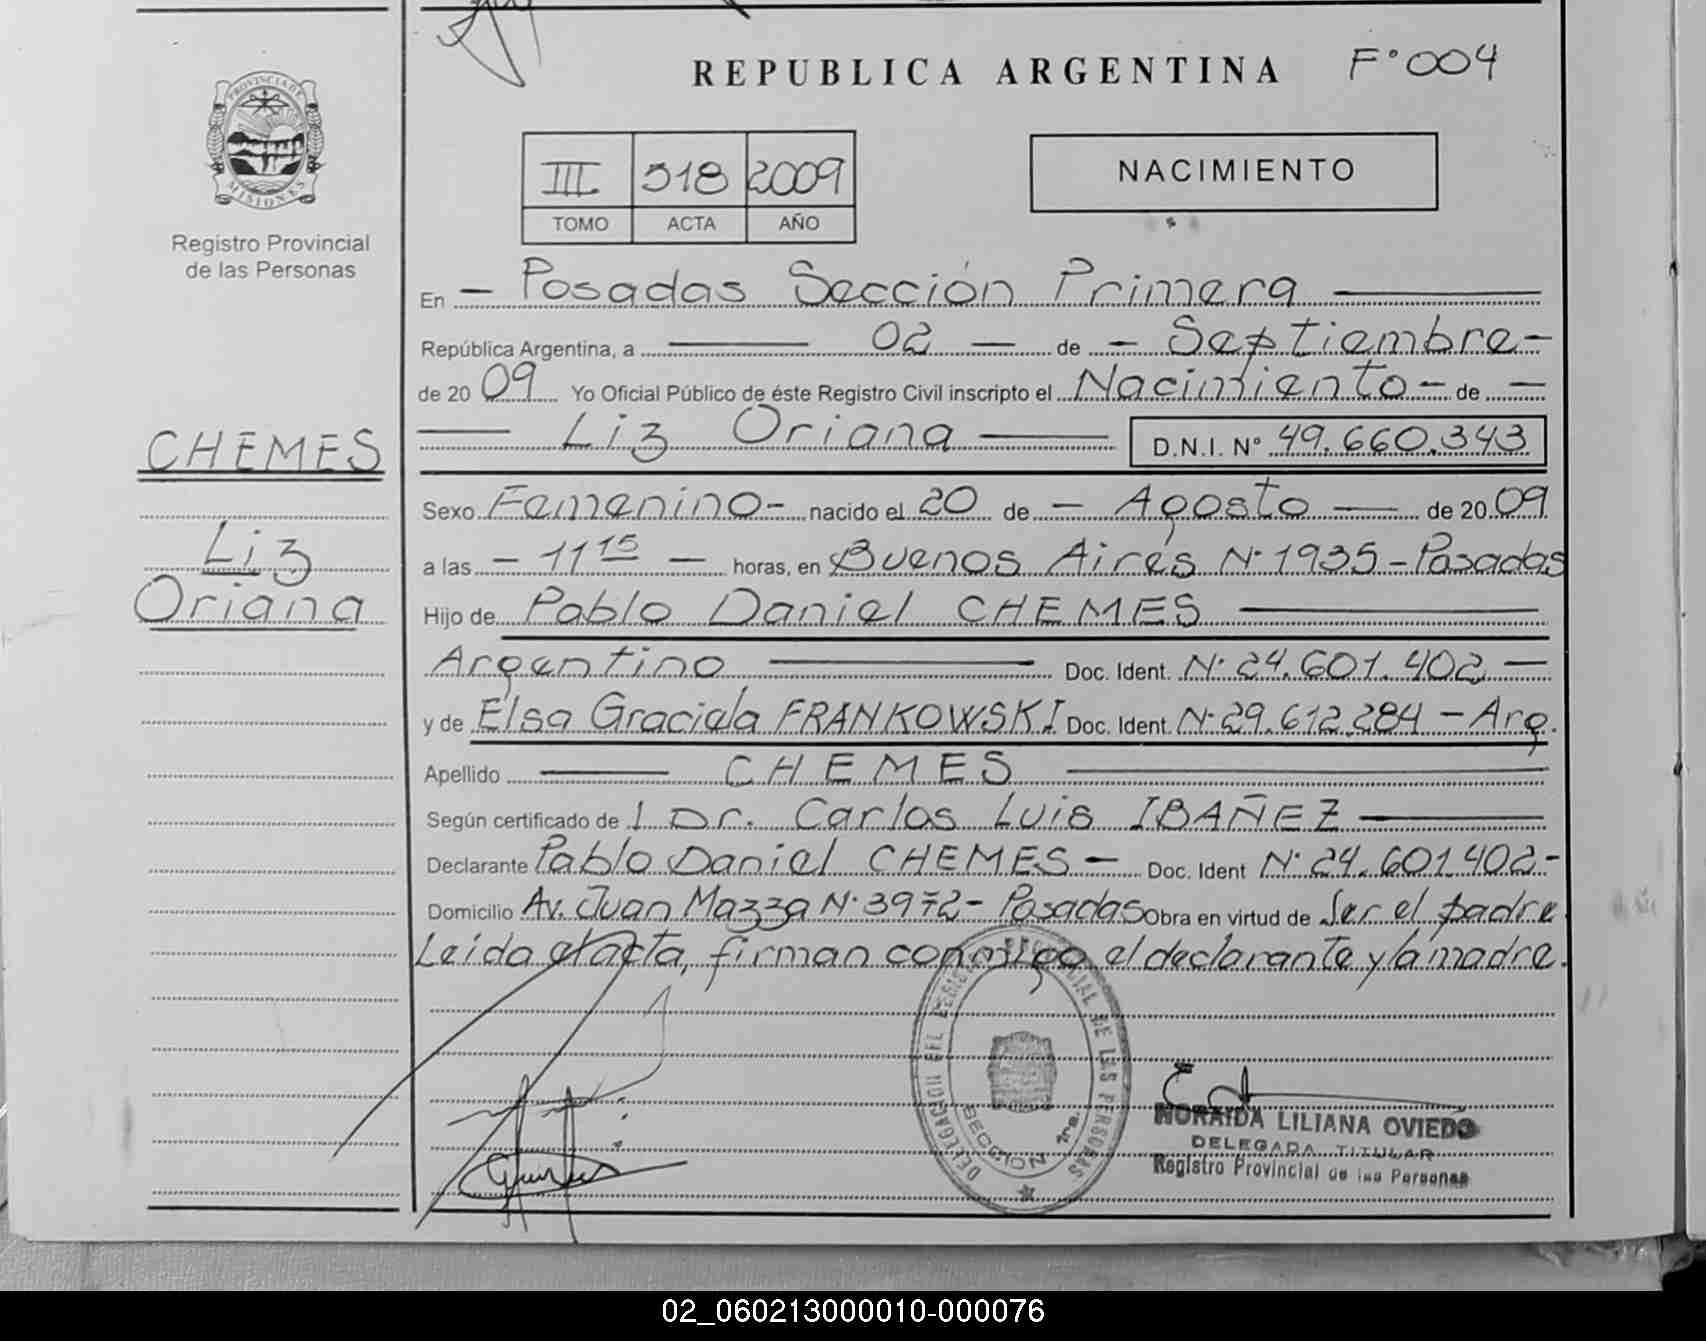 REPUBLICA ARGENTINA F° 004
PROVINCIA DE
MISIONES
Registro Provincial
de las Personas
III 318 2009
TOMO ACTA AÑO
NACIMIENTO
En - Posadas Sección Primera
República Argentina, a 02 - de - Septiembre -
de 20 09 Yo Oficial Público de éste Registro Civil inscripto el Nacimiento - de -
Liz Oriana D.N.I. N° 49.660.343
CHEMES
Liz
Oriana
Sexo Femenino - nacido el 20 de - Agosto - de 20 09
a las - 11 15 - horas, en Buenos Aires N° 1935 - Posadas
Hijo de Pablo Daniel CHEMES
Argentino Doc. Ident. N° 24.601.402 -
y de Elsa Graciela FRANKOWSKI Doc. Ident. N° 29.612.284 - Arg.
Apellido CHEMES
Según certificado de l Dr. Carlos Luis IBAÑEZ
Declarante Pablo Daniel CHEMES - Doc. Ident N° 24.601.402 -
Domicilio Av. Juan Mazza N° 3972 - Posadas Obra en virtud de Ser el padre.
Leida el acta, firman conmigo el declarante y la madre.
DELEGACION DEL REGISTRO PROVINCIAL DE LAS PERSONAS
SECCION 1ra.
NORAIDA LILIANA OVIEDO
DELEGADA TITULAR
Registro Provincial de las Personas
02_060213000010-000076